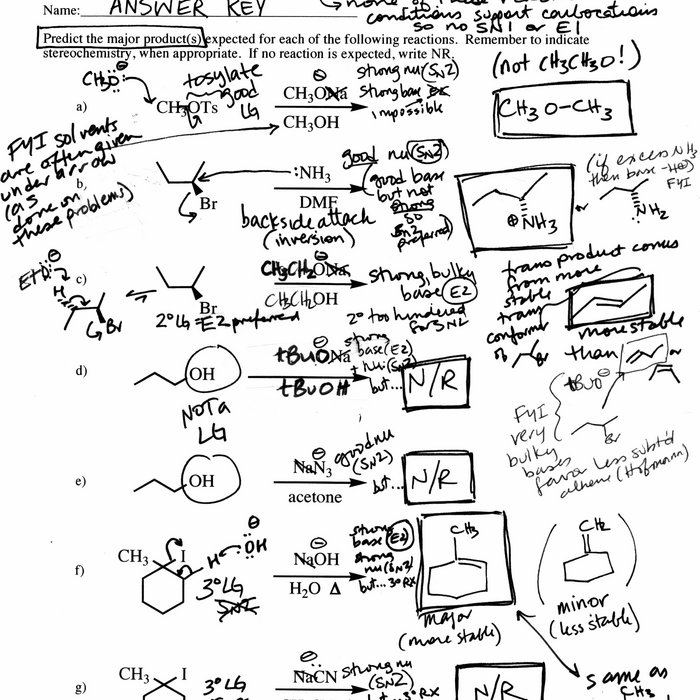 Name: ANSWER KEY
→ none of these
conditions support carbocations
so no SN1 or E1
Predict the major product(s) expected for each of the following reactions. Remember to indicate
stereochemistry, when appropriate. If no reaction is expected, write NR.
a)
CH3O:⊖
tosylate
good
LG
CH3OTs
CH3O⊖Na
CH3OH
strong nu (SN2)
strong base
impossible
(not CH3CH3O!)
CH3O-CH3
FYI solvents
are often given
under arrow
(as
done on
these problems)
b)
Br
:NH3
DMF
backside attach
(inversion)
good nu (SN2)
(good base
but not
strong
so
SN2
preferred)
⊕NH3
or
(if excess NH3
then base -H⊕)
FYI
NH2
c)
EtO:⊖
H
Br
Br
2° LG = E2 preferred
CH3CH2ONa
CH3CH2OH
strong, bulky
base (E2)
2° too hindered
for SN2
trans product comes
from more
stable
trans
conformer
of
Br
more stable
than
or
d)
OH
NOT a
LG
tBuO⊖Na
tBuOH
strong
base (E2)
+ nu (SN2)
but...
N/R
FYI
very
bulky
bases
favor less subst'd
alkene (Hofmann)
tBuO⊖
Br
e)
OH
⊖
NaN3
acetone
good nu
(SN2)
but...
N/R
f)
CH3
I
H
⊖
:OH
3° LG
SN2
⊖
NaOH
H2O Δ
strong
base (E2)
strong
nu (SN2)
but... 3° RX
CH3
major
(more stable)
CH2
minor
(less stable)
g)
CH3
I
3° LG
⊖
NaCN
strong nu
(SN2)
but... 3° RX
N/R
same as